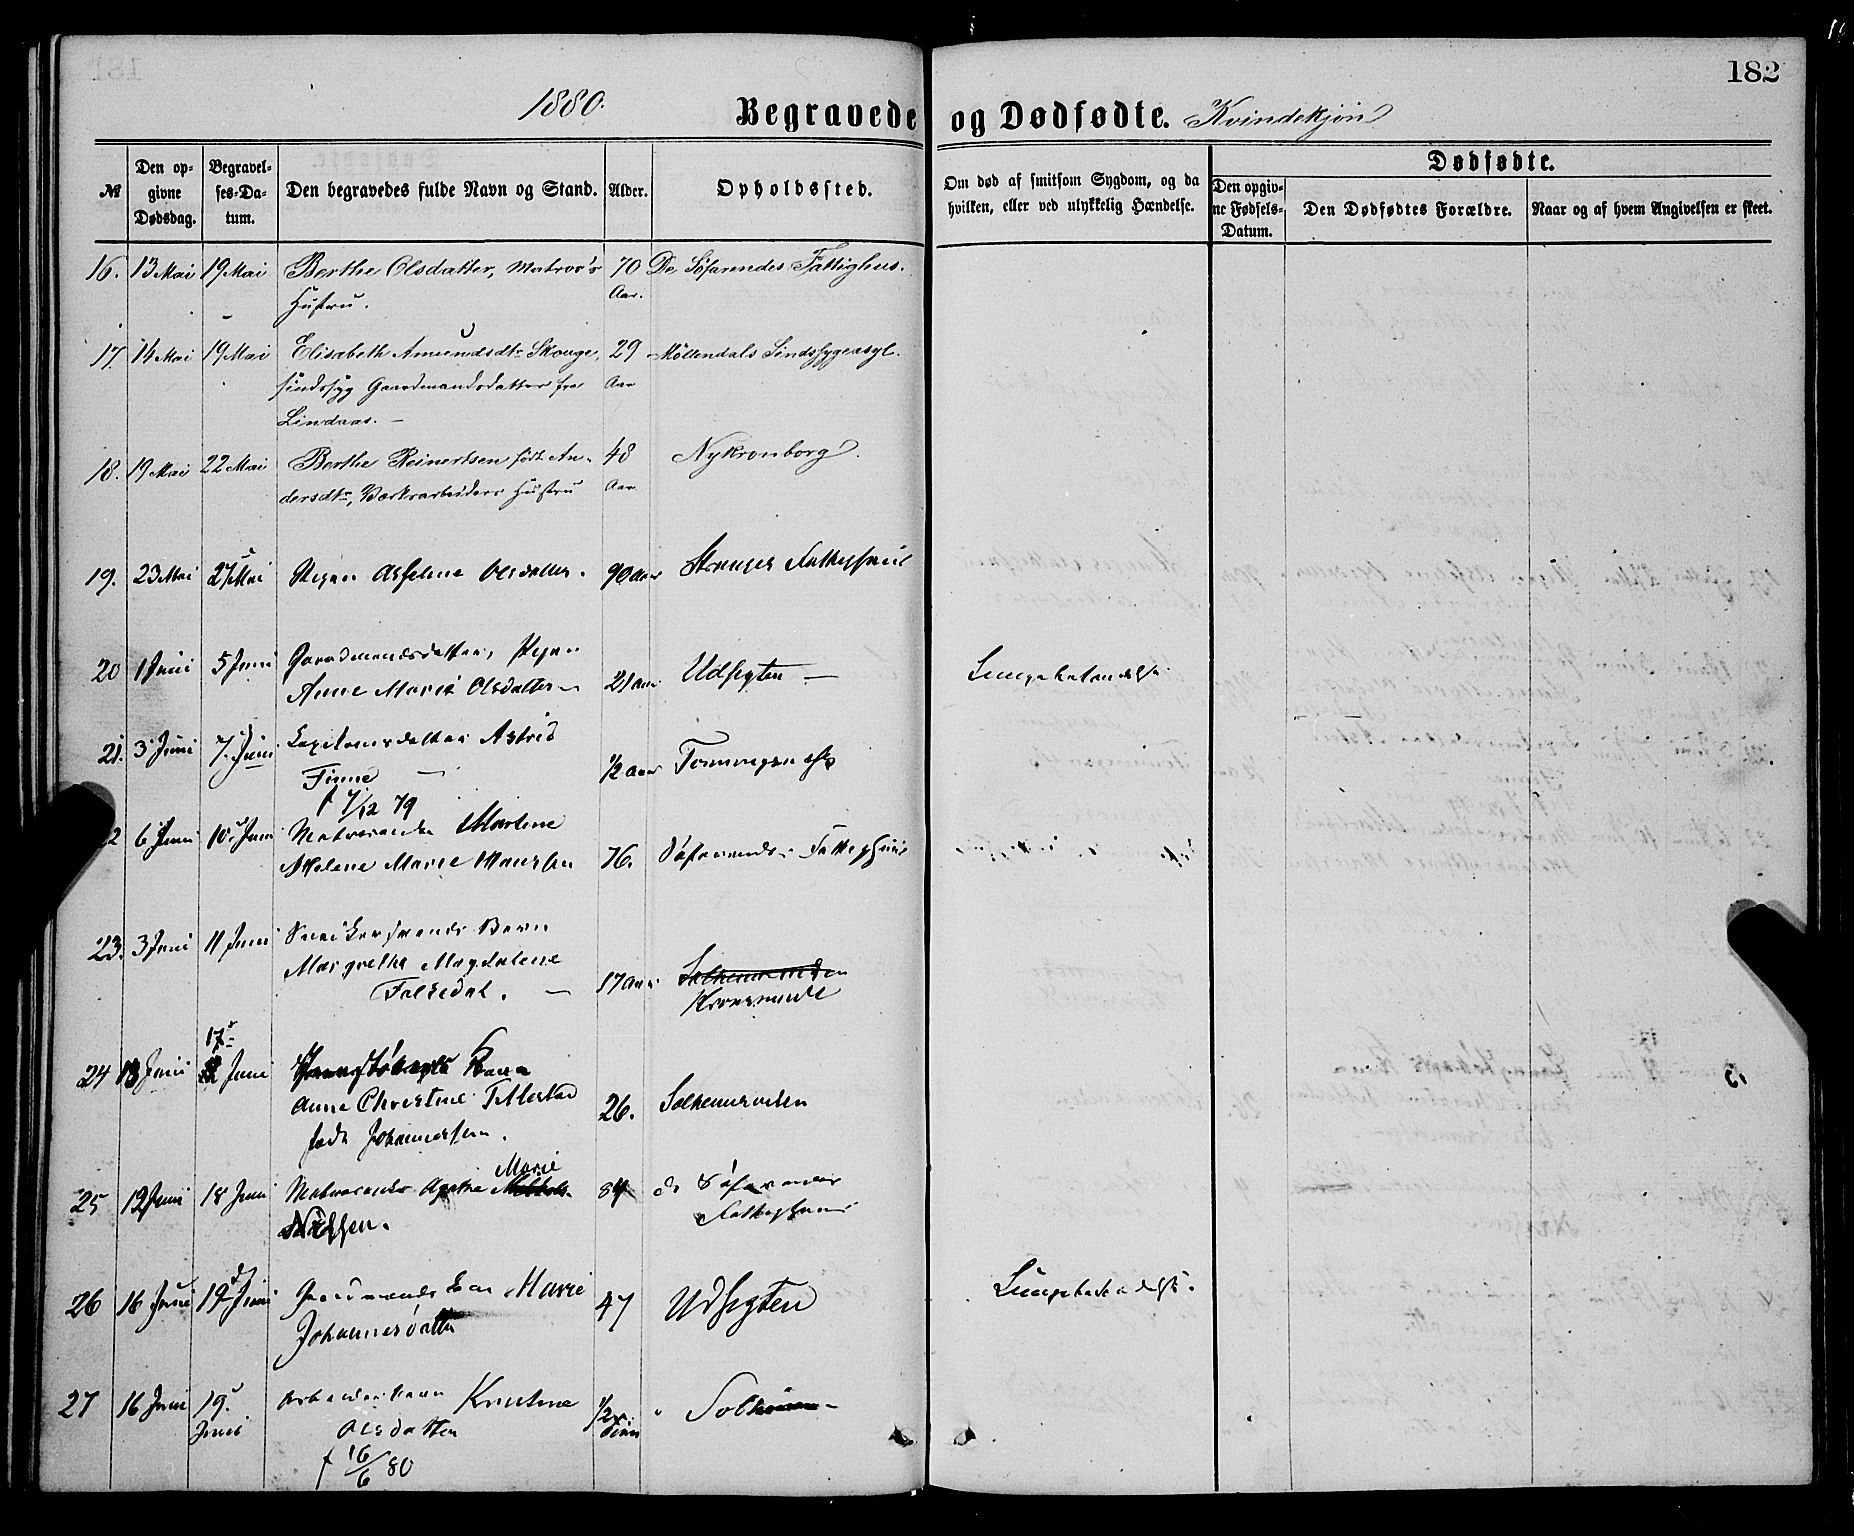 182
1880.
Begravede og Dødfødte. Kvindekjøn
№
Den opgivne Dødsdag.
Begravelses-Datum.
Den begravedes fulde Navn og Stand.
Alder.
Opholdssted.
Om død af smitsom Sygdom, og da hvilken, eller ved ulykkelig Hændelse.
Dødfødte.
Den opgivne Fødsels-Datum.
Den Dødfødtes Forældre.
Naar og af hvem Angivelsen er skeet.
16. 13 Mai 19 Mai Berthe Olsdatter, Matros's 70 De Søfarendes Fattighus.
Hustru. Aar.
17. 14 Mai 19 Mai Elisabeth Amundsdtr Skouge, 29 Møllendals Sindssygeasyl.
sindssyg Gaardmandsdatter fra Aar
Lindaas. —
18. 19 Mai 22 Mai Berthe Reinertsen født An- 48 Nykronborg.
dersdtr, Værksarbeiders Hustru Aar
19. 23 Mai 27 Mai Pigen Olsdatter. 90 aar Stranges Fattighuus
20 1 Juni 5 Juni Gaardmandsdatter, Pigen
Anne Marie Olsdatter — 21 aar Udsigten — Lungebetændelse
21. 3 Juni 7. Juni Kapitainsdatter Astrid
Finne — 1/2 aar
f 7/12 79
6 Juni 10. Juni Matrosenke Martine
Helene Marie Hansen 76. Søfarendes Fattighuus
23. 3 Juni 11 Juni Snedkersvends Barn
Margrethe Magdalene
17 aar
17
24 13 Juni Juni Kone
Anne Christine Tellestad 26. Solheimsviken
født Johannessen.
Marie
25 12 Juni 18 Juni Matrosenke Agathe 84 de Søfarendes
Nielsen. Fattighuus
26 16 Juni 19 Juni Gaardmands Kone Marie 47 Udsigten Lungebetændelse.
Johannesdatter
27 16 Juni 19. Arbeiderbarn Kristine 1/2
Juni Olsdatter
f 16/6 80